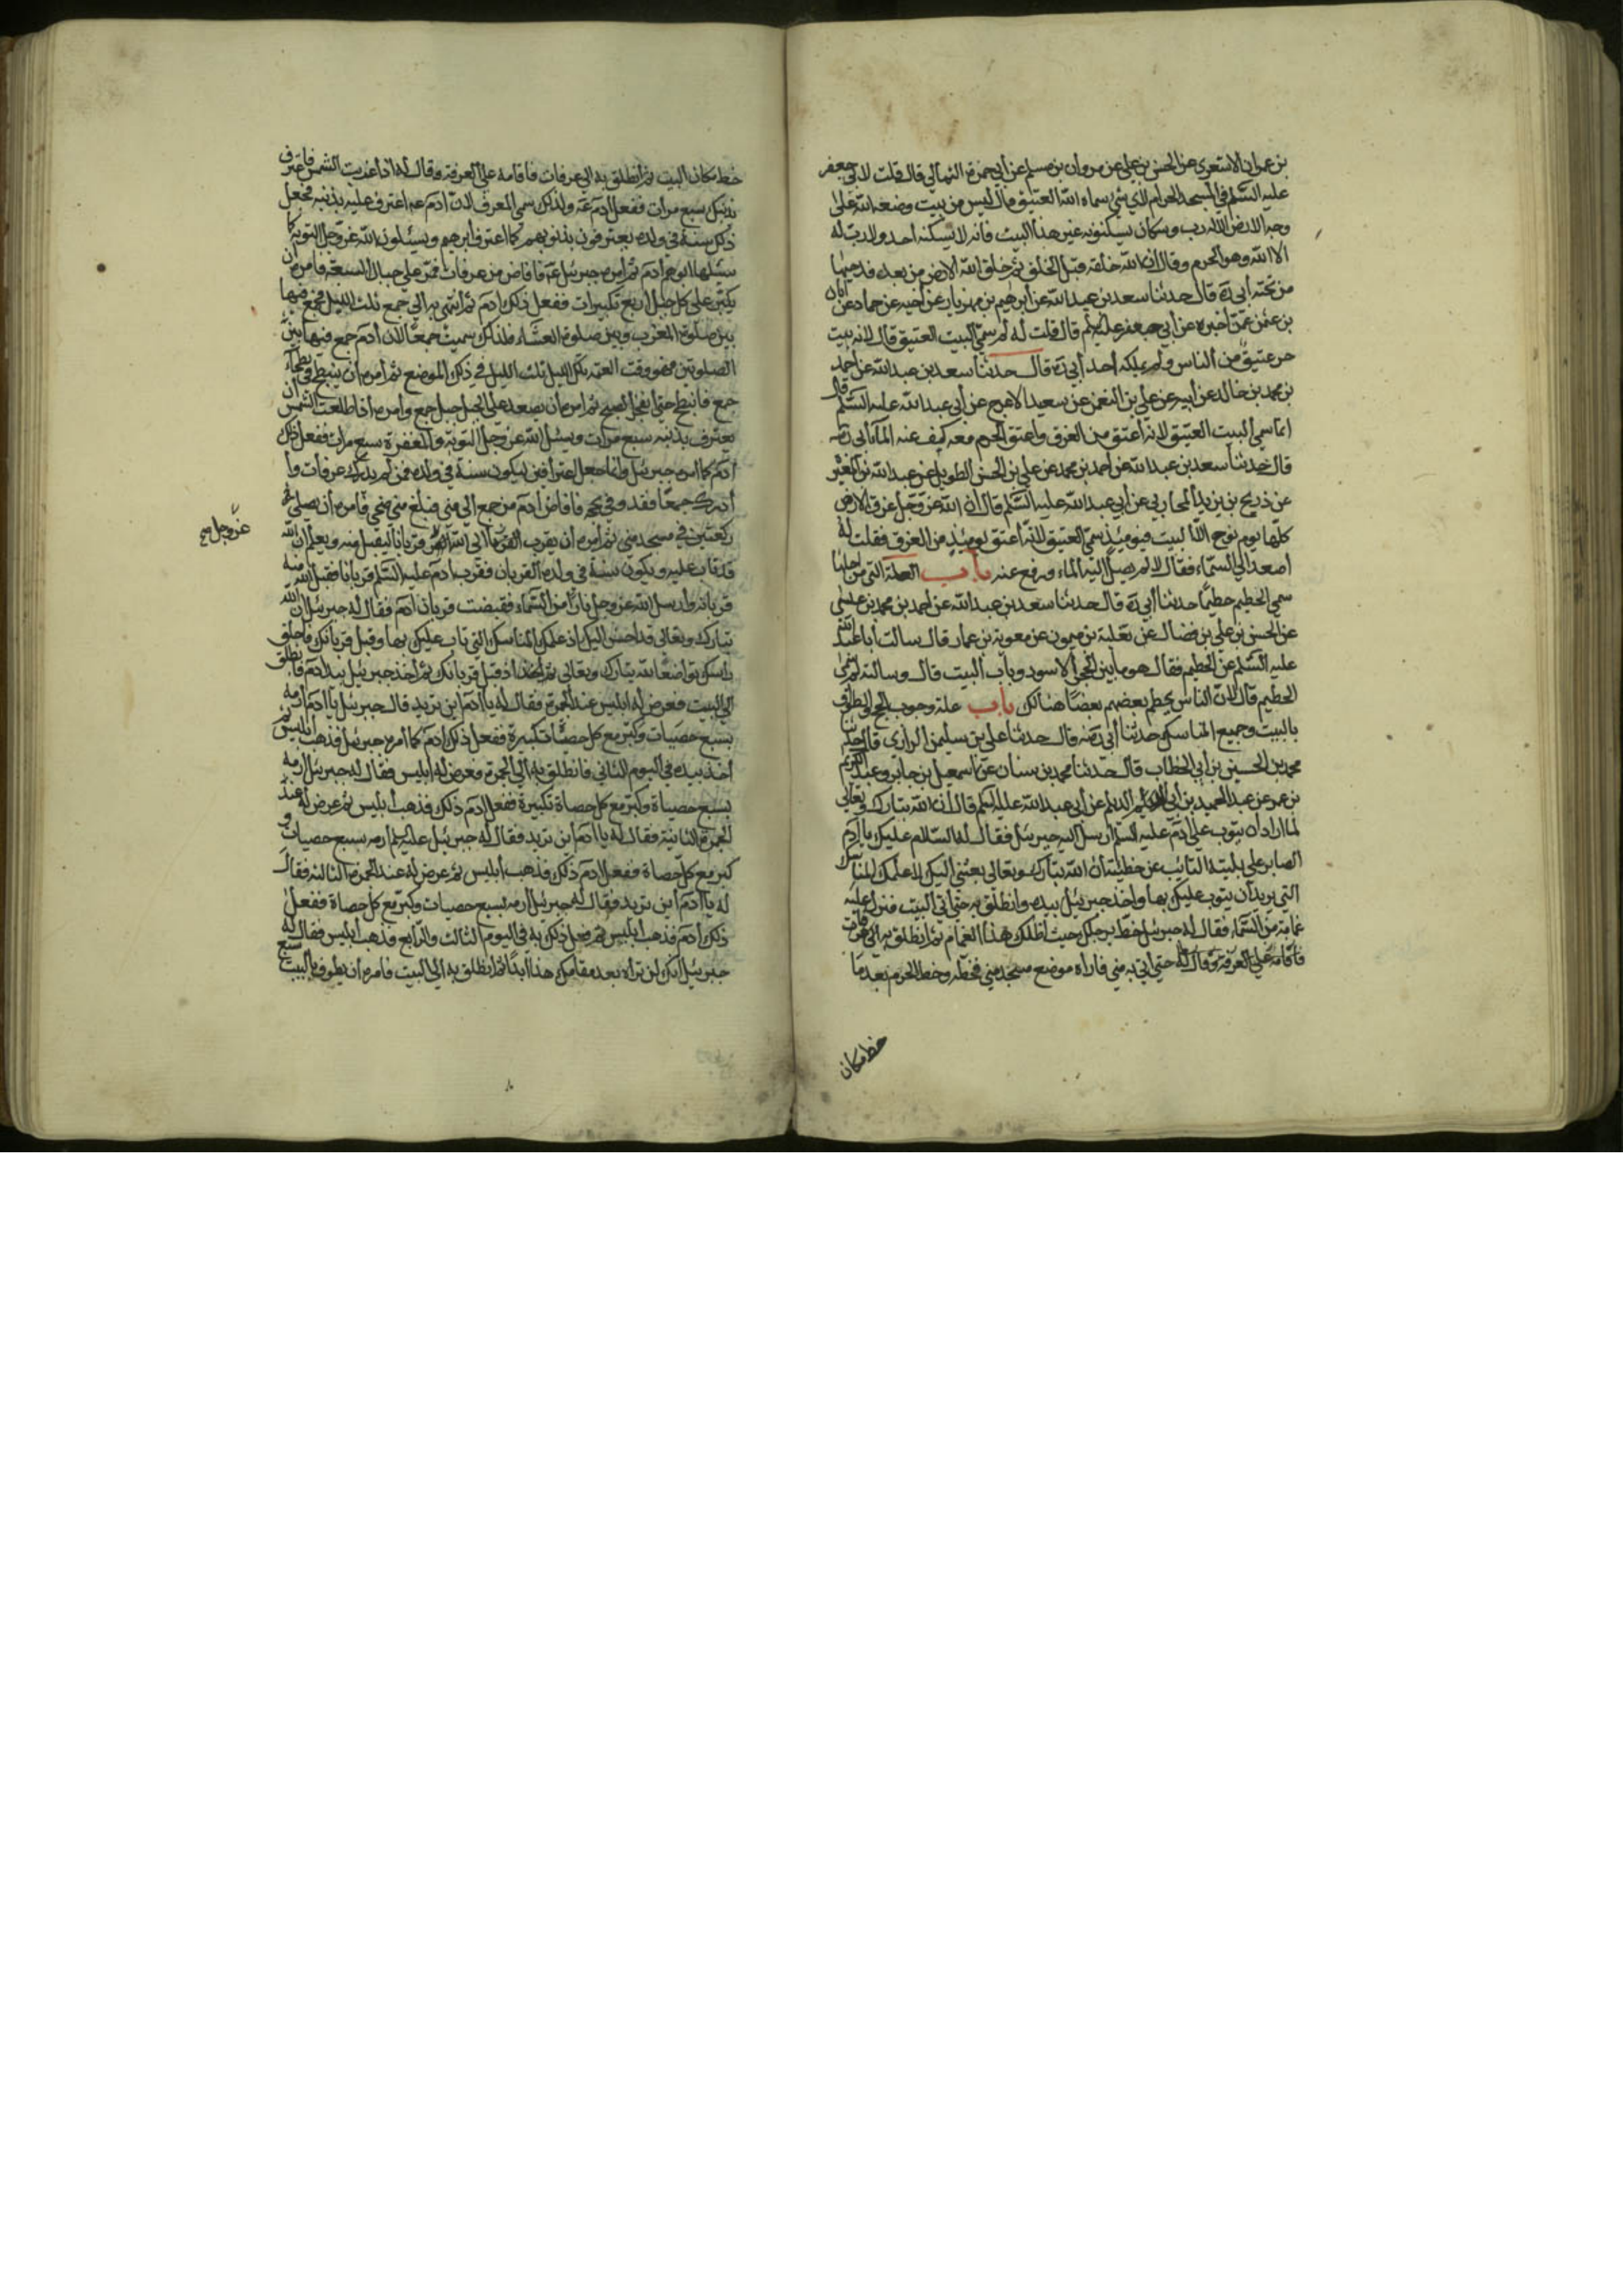 بن عمران الاشعري عن الحسن بن علي عن مروان بن مسلم عن أبي حمزة الثمالي قال قلت لابي جعفر
عليه السلم في المسجد الحرام لاي شئ سماه الله العتيق قال ليس من بيت وضعه الله على
وجه الارض الا له رب وسكان يسكنونه غير هذا البيت فانه لا يسكنه احد ولا رب له
الا الله وهو الحرم وقال ان الله خلقه قبل الخلق ثم خلق الله الارض من بعده فدحيها
من تحته أبي ره قال حدثنا سعد بن عبد الله عن ابرهيم بن مهزيار عن أخيه عن حماد عن ابان
بن عثمن عمن أخبره عن أبي جعفر عليه السلم قال قلت له لم سمي البيت العتيق قال لانه بيت
حر عتيق من الناس ولم يملكه أحد أبي ره قال حدثنا سعد بن عبد الله عن أحمد
بن محمد بن خالد عن أبيه عن علي بن النعمن عن سعيد الاعرج عن أبي عبد الله عليه السلم قال
انما سمي البيت العتيق لانه اعتق من الغرق واعتق الحرم معه كيف عنه الماء أبي ره
قال حدثنا سعد بن عبد الله عن أحمد بن محمد عن علي بن الحسن الطويل عن عبد الله بن المغيرة
عن ذريح بن يزيد المحاربي عن أبي عبد الله عليه السلم قال ان الله عز وجل غرق الارض
كلها يوم نوح الا البيت فيومئذ سمي العتيق لانه أعتق يومئذ من الغرق فقلت له
أصعد الي السماء فقال لا لم يصل اليه الماء ورفع عنه باب العلة التي من اجلها
سمي الحطيم حطيما حدثنا أبي ره قال حدثنا سعد بن عبد الله عن احمد بن محمد بن عيسى
عن الحسن بن علي بن فضال عن ثعلبة بن ميمون عن معوية بن عمار قال سالت أبا عبد الله
عليه السلم عن الحطيم فقال هو ما بين الحجر الاسود وباب البيت قال وسالته لم سمي
الحطيم قال لان الناس يحطم بعضهم بعضا هنالك باب علة وجوب الحج والطواف
بالبيت وجميع المناسك حدثنا أبي رضه قال حدثنا علي بن سليمن الرازي قال حدثنا
محمد بن الحسين بن أبي الخطاب قال حدثنا محمد بن سنان عن اسمعيل بن جابر وعبد الكريم
بن عمر عن عبد الحميد بن أبي الديلم عن أبي عبد الله عليه السلم قال ان الله تبارك وتعالى
لما اراد ان يتوب على ادم عليه السلم ارسل اليه جبرئيل فقال له السلام عليك يا آدم
الصابر على بليته التائب عن خطيئته ان الله تبارك وتعالى بعثني اليك لاعلمك المناسك
التي يريد أن يتوب عليك بها واخذ جبرئيل بيده وانطلق به حتى أتي البيت فنزل عليه
غمامة من السماء فقال له جبرئيل خط برجلك حيث أظلك هذا الغمام ثم انطلق به الى عرفات
فأقامه على العرفة وقال له حتى اتي به مني فاراه موضع مسجد مني فخطه وخط الحرم بعد ما
خط مكان
خط مكان البيت ثم انطلق به الى عرفات فاقامه على العرفة وقال له اذا غربت الشمس فاعترف
بذنبك سبع مرات ففعل ادم ع ولذلك سمي المعرف لان ادم ع اعترف عليه بذنبه فجعل
ذلك سنة في ولده يعترفون بذنوبهم كما اعترف ابوهم ويسئلون الله عز وجل التوبة كما
سئلها ابوهم ادم ثم امره جبرئيل ع فافاض من عرفات فمر على جبال السبعة فامره ان
يكبر على كل جبل أربع تكبيرات ففعل ذلك ادم ثم انتهى به الى جمع ثلث الليل فجمع فيها
بين صلوة المغرب وبين صلوة العشاء فلذلك سميت جمعا لان ادم جمع فيها بين
الصلوتين فهو وقت العتمة تلك الليلة ثلث الليل في ذلك الموضع ثم أمره أن ينبطح في بطحاء
جمع فانبطح حتى انفجر الصبح ثم امره أن يصعد على الجبل جبل جمع وامره اذا طلعت الشمس ان
يعترف بذنبه سبع مرات ويسئل الله عز وجل التوبة والمغفرة سبع مرات ففعل ذلك
آدم كما امره جبرئيل وانما جعل اعترافين ليكون سنة في ولده فمن لم يدرك عرفات وأ
أدرك جمعا فقد وفي بحجه فافاض ادم من جمع الي مني فبلغ مني ضحي فامره أن يصلي
ركعتين في مسجد مني ثم أمره أن يقرب الى الله قربانا ليقبل منه ويعلم ان الله
عز وجل صح
قد تاب عليه ويكون سنة في ولده القربان فقرب ادم عليه السلم قربانا فقبل الله منه
قربانه وارسل الله عز وجل نارا من السماء فقبضت قربان آدم فقال له جبرئيل ان الله
تبارك وتعالى قد احسن اليك اذ علمك المناسك التي تاب عليك بها وقبل قربانك فاحلق
راسك تواضعا لله تبارك وتعالى اذ قبل قربانك ثم أخذ جبرئيل بيد ادم فانطلق
الى البيت فعرض له ابليس عند الجمرة فقال له يا ادم اين تريد قال جبرئيل يا ادم ارمه
بسبع حصيات وكبر مع كل حصاة تكبيرة ففعل ذلك ادم كما امره جبرئيل فذهب ابليس ثم
اخذ بيده في اليوم الثاني فانطلق به الى الجمرة فعرض له ابليس فقال له جبرئيل ارمه
بسبع حصيات وكبر مع كل حصاة تكبيرة ففعل ادم ذلك فذهب أبليس ثم عرض له عند
الجمرة الثانية فقال له يا ادم اين تريد فقال له جبرئيل عليه السلم ارمه بسبع حصيات و
كبر مع كل حصاة ففعل ادم ذلك فذهب أبليس ثم عرض له عند الجمرة الثالثة فقال
له يا ادم اين تريد فقال له جبرئيل ارمه بسبع حصيات وكبر مع كل حصاة ففعل
ذلك أدم فذهب أبليس ثم فعل ذلك به في اليوم الثالث والرابع فذهب أبليس فقال له
جبرئيل انك لن تراه بعد مقامك هذا أبدا ثم انطلق به الى البيت فامره ان يطوف بالبيت سبع